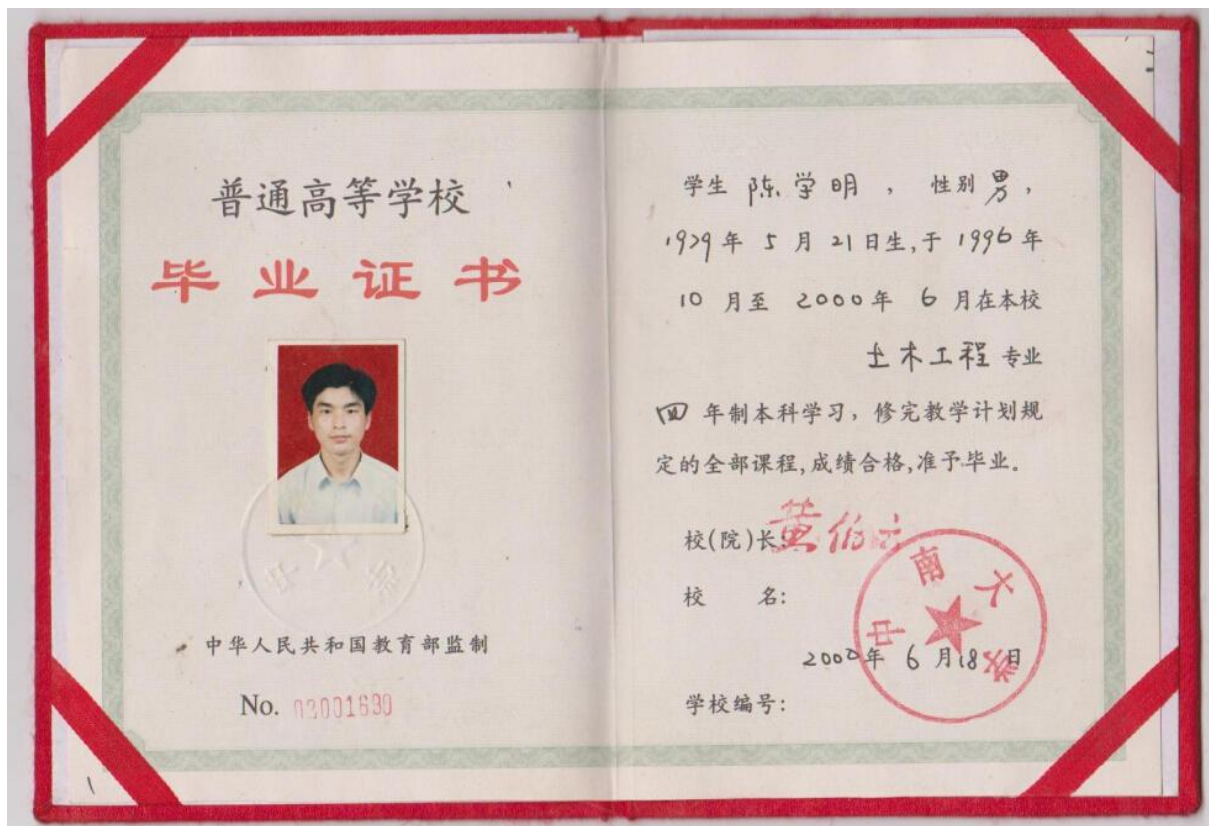 普通高等学校
毕业证书
中华人民共和国教育部监制
No. 03001690
学生 陈学明 ， 性别 男 ，
1979年 5 月 21日生,于 1996年
10 月至 2000年 6 月在本校
土木工程 专业
四 年制本科学习，修完教学计划规
定的全部课程,成绩合格,准予毕业。
校(院)长:
黄伯云
校 名:
中南大学
2000年 6 月18日
学校编号: